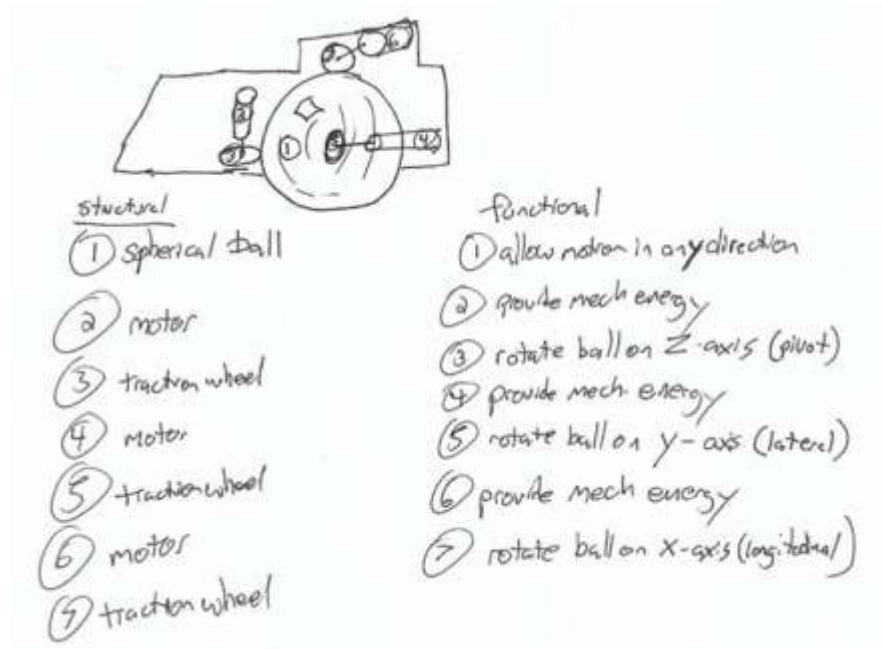 2
3
1
5
4
7
6
structural
1 spherical ball
2 motor
3 traction wheel
4 motor
5 traction wheel
6 motor
7 traction wheel
functional
1 allow motion in any direction
2 provide mech energy
3 rotate ball on Z-axis (pivot)
4 provide mech. energy
5 rotate ball on y-axis (lateral)
6 provide mech energy
7 rotate ball on X-axis (longitudinal)